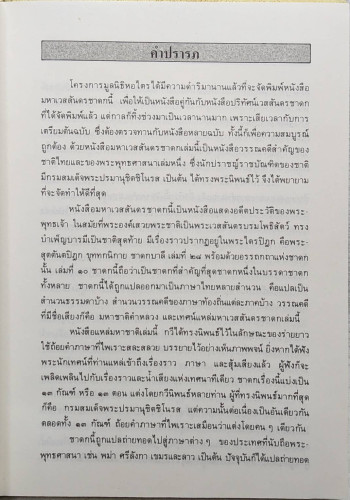 คำปรารภ
โครงการมูลนิธิหอไตรได้มีความดำริมานานแล้วที่จะจัดพิมพ์หนังสือ
มหาเวสสันดรชาดกนี้ เพื่อให้เป็นหนังสือคู่กันกับหนังสือปริทัศน์เวสสันดรชาดก
ที่ได้จัดพิมพ์แล้ว แต่กาลก็ทิ้งช่วงมาเป็นเวลานานมาก เพราะเสียเวลากับการ
เตรียมต้นฉบับ ซึ่งต้องตรวจทานกับหนังสือหลายฉบับ ทั้งนี้ก็เพื่อความสมบูรณ์
ถูกต้อง ด้วยหนังสือมหาเวสสันดรชาดกเล่มนี้เป็นหนังสือวรรณคดีสำคัญของ
ชาติไทยและของพระพุทธศาสนาเล่มหนึ่ง ซึ่งนักปราชญ์ราชบัณฑิตของชาติ
มีกรมสมเด็จพระปรมานุชิตชิโนรส เป็นต้น ได้ทรงพระนิพนธ์ไว้ จึงได้พยายาม
ที่จะจัดทำให้ดีที่สุด
หนังสือมหาเวสสันดรชาดกนี้เป็นหนังสือแสดงอดีตประวัติของพระ-
พุทธเจ้า ในสมัยที่พระองค์เสวยพระชาติเป็นพระเวสสันดรบรมโพธิสัตว์ ทรง
บำเพ็ญบารมีเป็นชาติสุดท้าย มีเรื่องราวปรากฏอยู่ในพระไตรปิฎก คือพระ-
สุตตันตปิฎก ขุททกนิกาย ชาดกบาลี เล่มที่ ๒๘ พร้อมด้วยอรรถกถาแห่งชาดก
นั้น เล่มที่ ๑๐ ชาดกนี้ถือว่าเป็นชาดกที่สำคัญที่สุดชาดกหนึ่งในบรรดาชาดก
ทั้งหลาย ชาดกนี้ได้ถูกแปลออกมาเป็นภาษาไทยหลายสำนวน คือแปลเป็น
สำนวนธรรมดาบ้าง สำนวนวรรณคดีของภาษาท้องถิ่นแต่ละภาคบ้าง วรรณคดี
ที่มีชื่อเสียงก็คือ มหาชาติคำหลวง และเทศน์แหล่มหาเวสสันดรชาดกเล่มนี้
หนังสือแหล่มหาชาติเล่มนี้ กวีได้ทรงนิพนธ์ไว้ในลักษณะของร่ายยาว
ใช้ถ้อยคำภาษาที่ไพเราะสละสลวย บรรยายไว้อย่างเห็นภาพพจน์ ยิ่งหากได้ฟัง
พระนักเทศน์ที่ท่านแหล่เข้าถึงเรื่องราว ภาษา และสุ้มเสียงแล้ว ผู้ฟังก็จะ
เพลิดเพลินไปกับเรื่องราวและน้ำเสียงแห่งเทศนาทีเดียว ชาดกเรื่องนี้แบ่งเป็น
๑๓ กัณฑ์ หรือ ๑๓ ตอน แต่งโดยกวีนิพนธ์หลายท่าน ผู้ที่ทรงนิพนธ์มากที่สุด
ก็คือ กรมสมเด็จพระปรมานุชิตชิโนรส แต่ความนั้นต่อเนื่องเป็นอันเดียวกัน
ตลอดทั้ง ๑๓ กัณฑ์ ถ้อยคำภาษาที่ไพเราะเหมือนว่าแต่งโดยคน ๆ เดียวกัน
ชาดกนี้ถูกแปลถ่ายทอดไปสู่ภาษาต่าง ๆ ของประเทศที่นับถือพระ-
พุทธศาสนา เช่น พม่า ศรีลังกา เขมรและลาว เป็นต้น ปัจจุบันก็ได้แปลถ่ายทอด